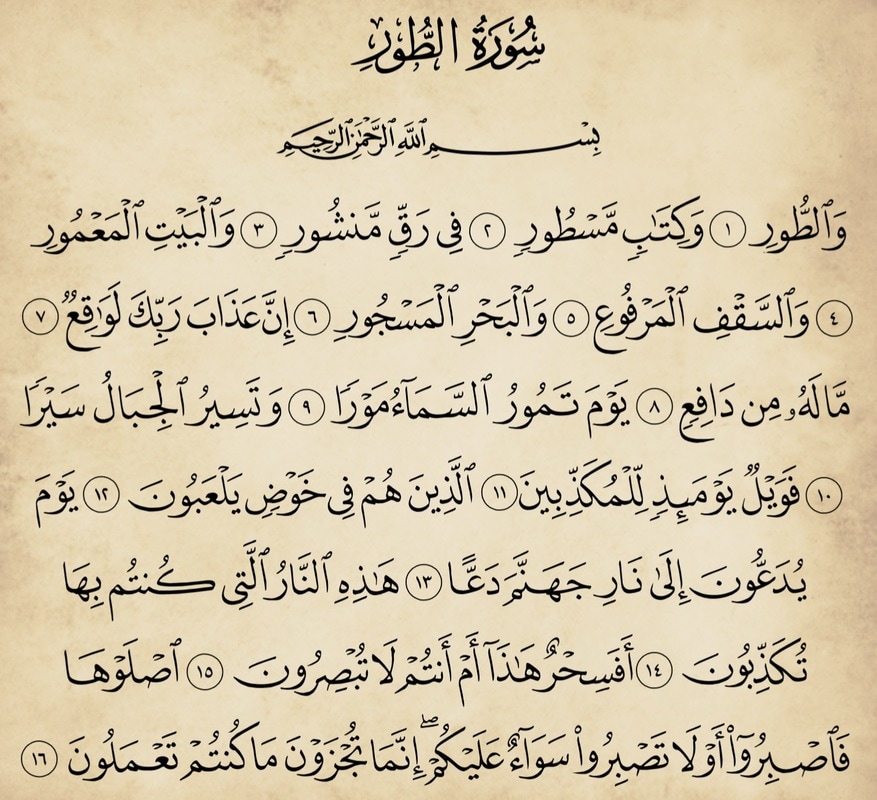 سُورَةُ الطُّورِ
بِسْمِ ٱللَّهِ ٱلرَّحْمَٰنِ ٱلرَّحِيمِ
وَٱلطُّورِ ١ وَكِتَٰبٍ مَّسْطُورٍ ٢ فِى رَقٍّ مَّنشُورٍ ٣ وَٱلْبَيْتِ ٱلْمَعْمُورِ
٤ وَٱلسَّقْفِ ٱلْمَرْفُوعِ ٥ وَٱلْبَحْرِ ٱلْمَسْجُورِ ٦ إِنَّ عَذَابَ رَبِّكَ لَوَٰقِعٌ ٧
مَّا لَهُۥ مِن دَافِعٍ ٨ يَوْمَ تَمُورُ ٱلسَّمَآءُ مَوْرًا ٩ وَتَسِيرُ ٱلْجِبَالُ سَيْرًا
١٠ فَوَيْلٌ يَوْمَئِذٍ لِّلْمُكَذِّبِينَ ١١ ٱلَّذِينَ هُمْ فِى خَوْضٍ يَلْعَبُونَ ١٢ يَوْمَ
يُدَعُّونَ إِلَىٰ نَارِ جَهَنَّمَ دَعًّا ١٣ هَٰذِهِ ٱلنَّارُ ٱلَّتِى كُنتُم بِهَا
تُكَذِّبُونَ ١٤ أَفَسِحْرٌ هَٰذَآ أَمْ أَنتُمْ لَا تُبْصِرُونَ ١٥ ٱصْلَوْهَا
فَٱصْبِرُوٓا۟ أَوْ لَا تَصْبِرُوا۟ سَوَآءٌ عَلَيْكُمْ ۖ إِنَّمَا تُجْزَوْنَ مَا كُنتُمْ تَعْمَلُونَ ١٦